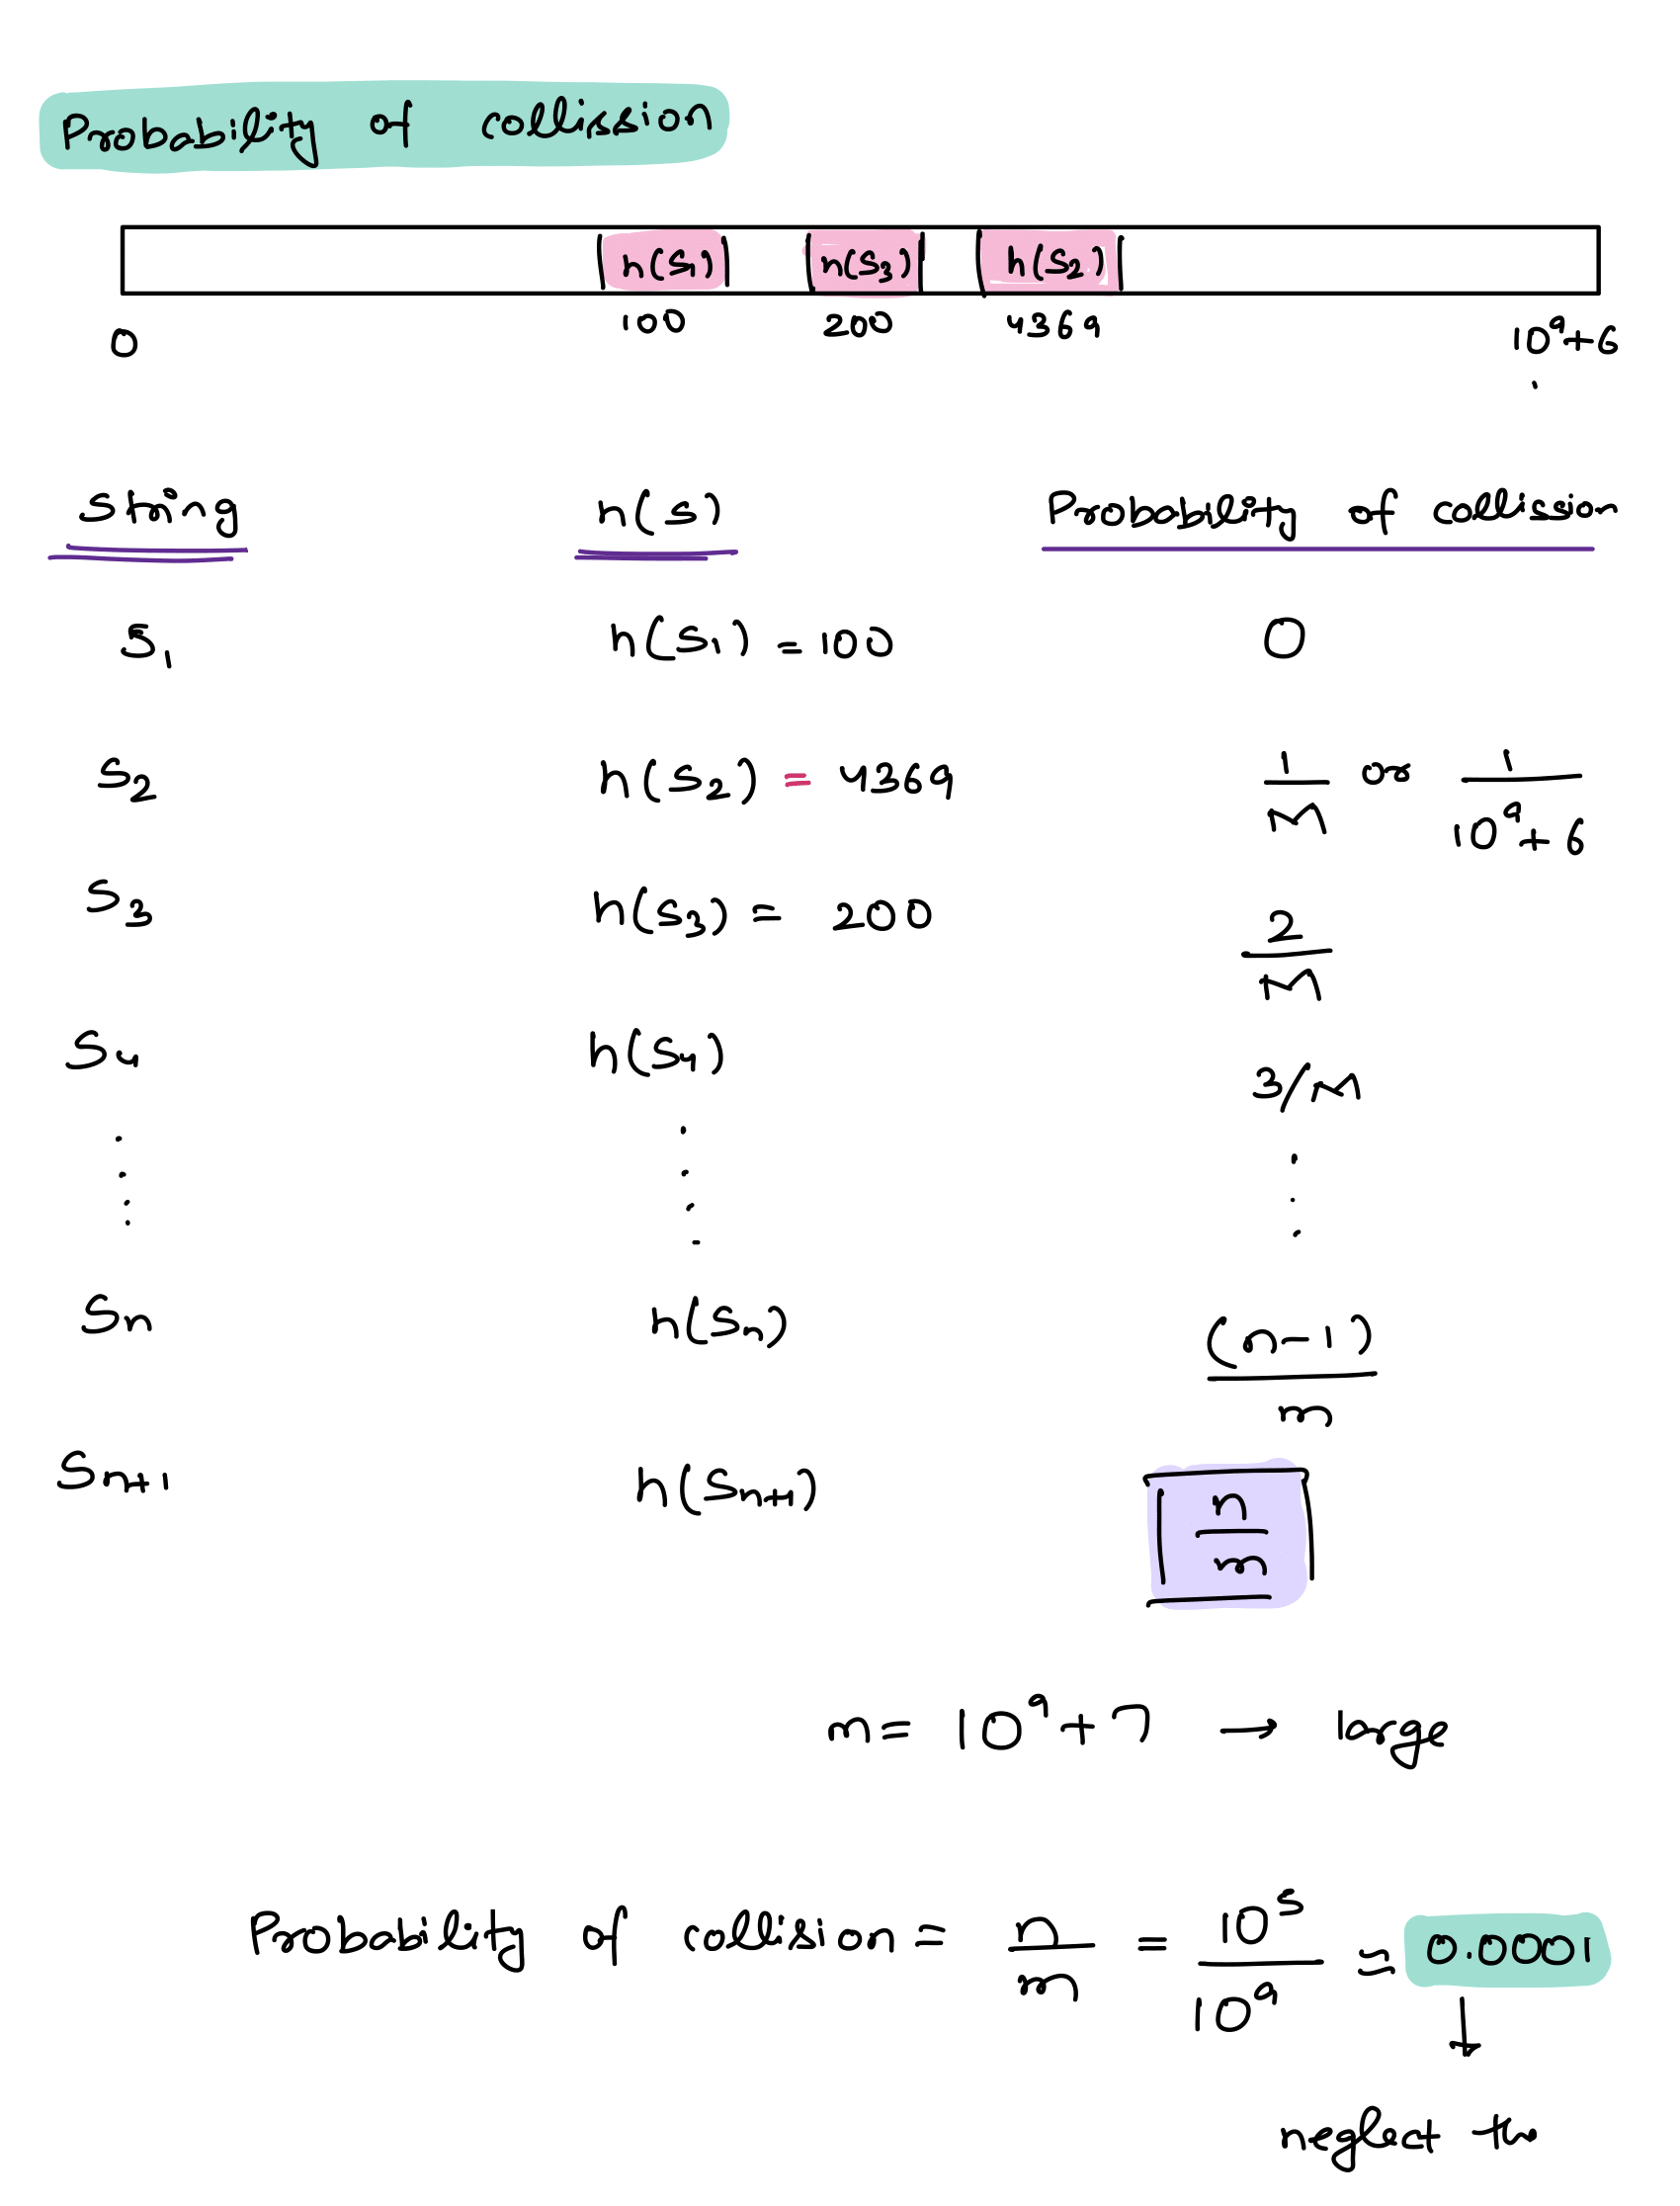 Probability of collission
h(S1) h(S3) h(S2)
0 100 200 4369 10⁹+6
String h(s) Probability of collission
S1 h(S1) = 100 0
S2 h(S2) = 4369 1/M or 1/10⁹+6
S3 h(S3) = 200 2/M
S4 h(S4) 3/M
Sn h(Sn) (n-1)/m
Sn+1 h(Sn+1) n/m
m = 10⁹+7 → large
Probability of collision = n/m = 10⁵/10⁹ ≈ 0.0001
↓
neglect